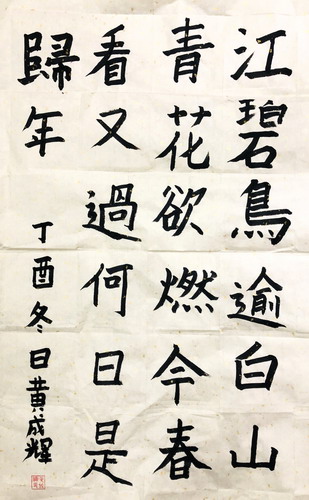 江碧鳥逾白山
青花欲燃今春
看又過何日是
歸年
丁酉冬日黄成輝